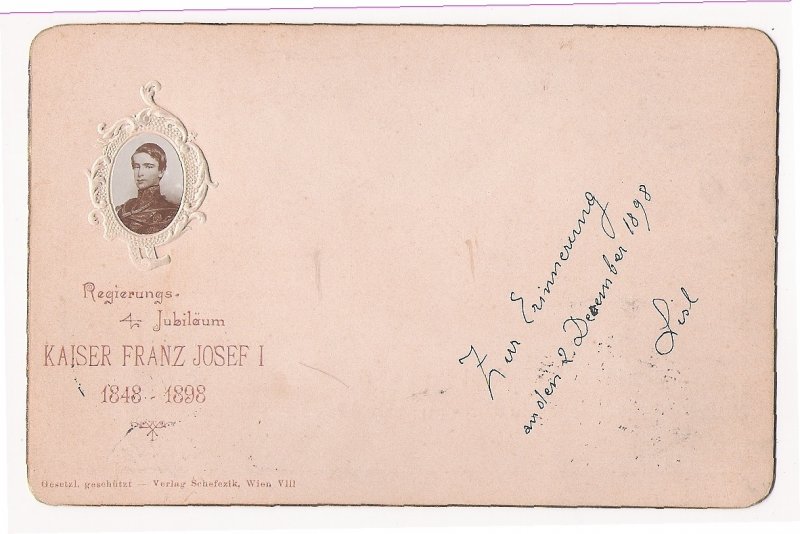 Regierungs-
Jubiläum
KAISER FRANZ JOSEF I
1848 - 1898
Gesetzl. geschützt — Verlag Schefezik, Wien VIII
Zur Erinnerung
an den 2. December 1898
Lisl